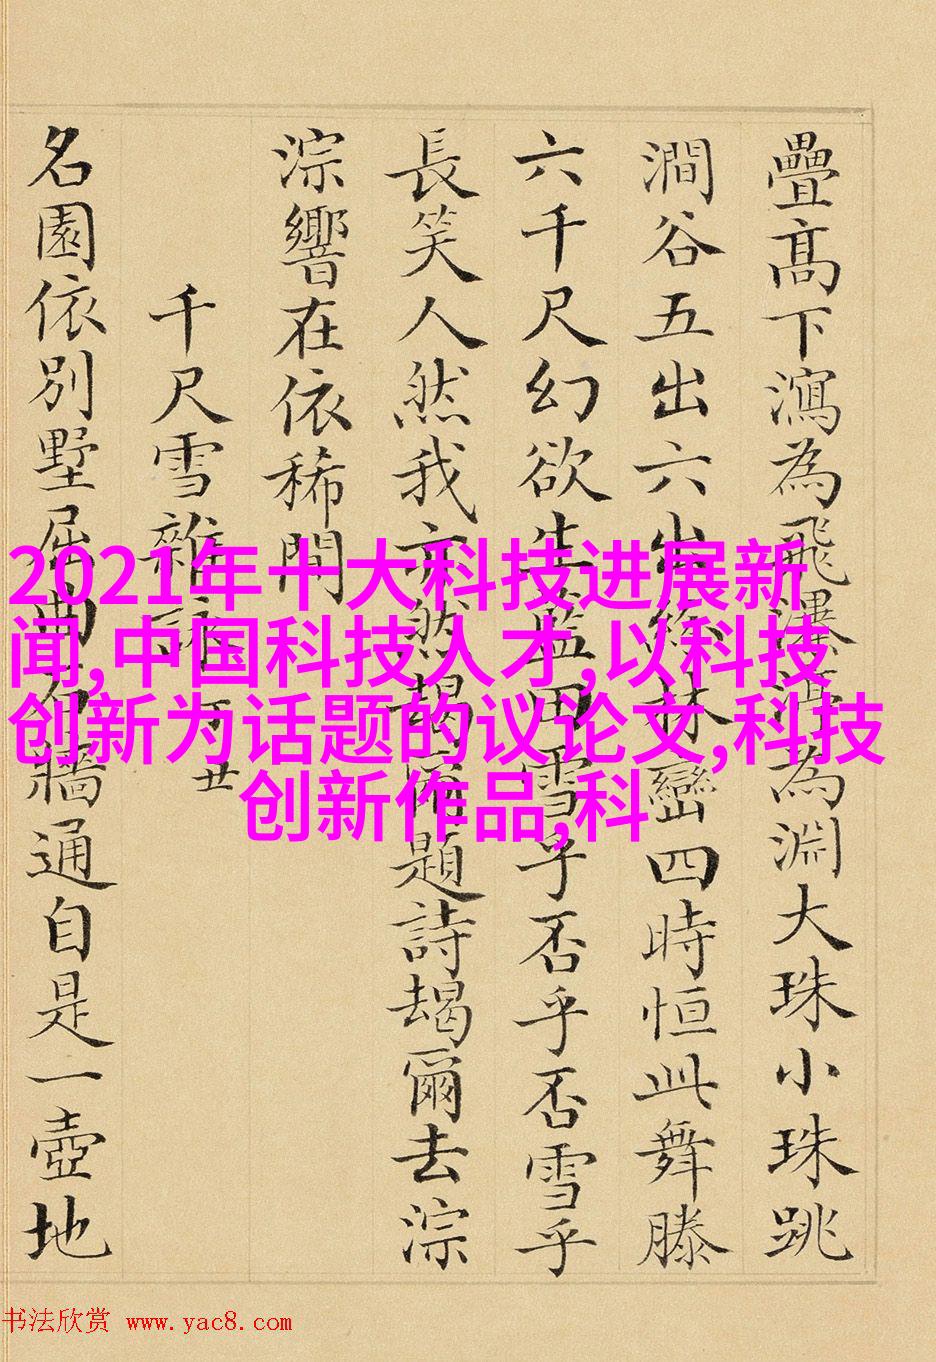 疊高下瀉為飛瀑渟為淵大珠小珠跳
澗谷五出六出綴林巒四時恒此舞滕
六千尺幻欲生藍田雪乎否乎否雪乎
長笑人然我亦然朅爾題詩朅爾去淙
淙響在依稀間
千尺雪雜詠
名園依別墅屈曲有牆通自是一壺地
2021年十大科技进展新
闻,中国科技人才,以科技
创新为话题的议论文,科技
创新作品,科
书法欣赏 www.yac8.com